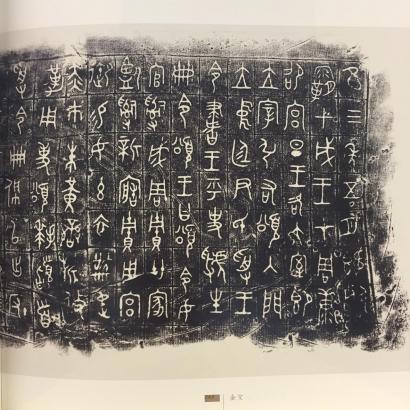 隹三年五月既死
霸甲戌王才周康
卲宮旦王各大室即
立宰引右頌入門
立中廷尹氏受王
令書王乎史虢生
冊令頌王曰頌令女
官司成周貯廿家
監司新造貯用宮
御易女玄衣黹屯
赤巿朱黃鑾旂攸
勒用事頌拜稽首
受令冊佩以出反
金文